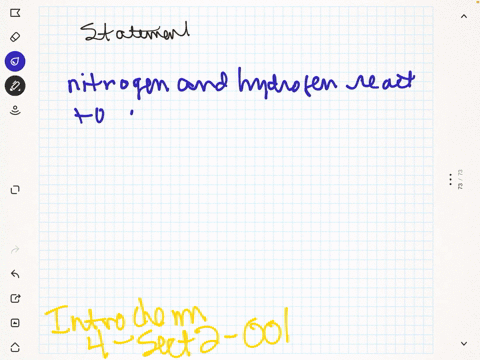 Statement
nitrogen and hydrogen react
to
Intro chem
4-Sect 2-001
73 / 73